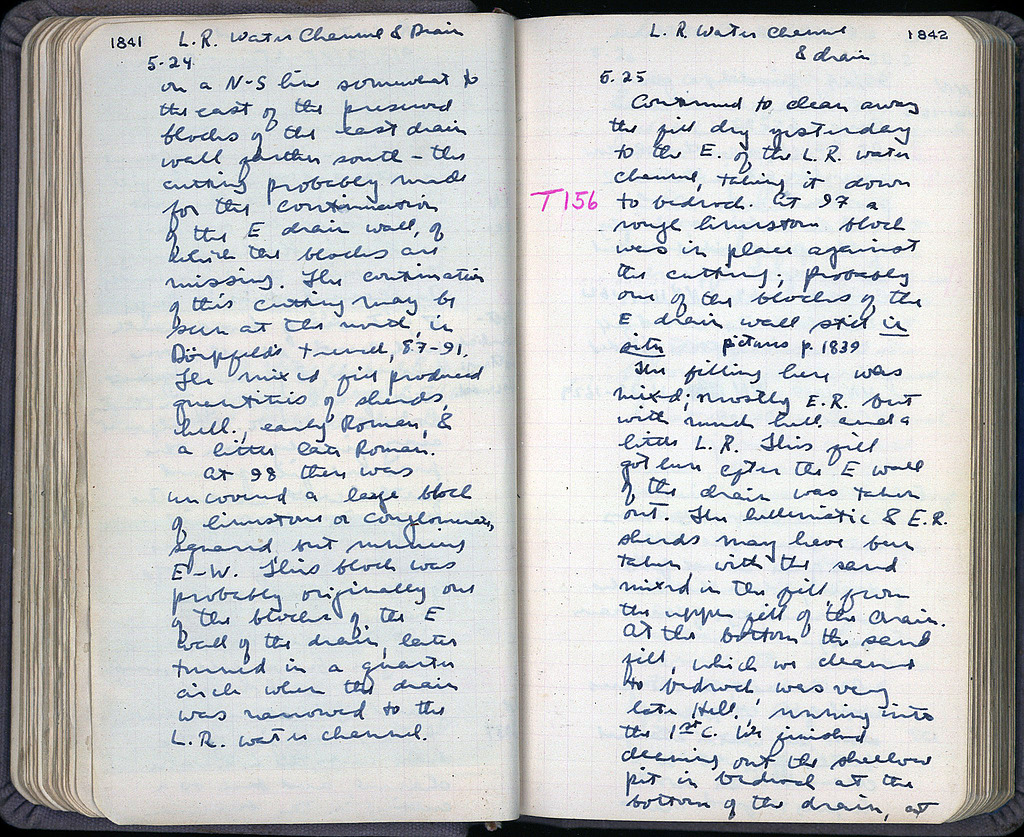 1841
L.R. Water Channel & Drain
5-24
on a N-S line somewhat to
the east of the preserved
blocks of the east drain
wall farther south - the
cutting probably made
for the continuation
of the E drain wall, of
which the blocks are
missing. The continuation
of this cutting may be
seen at the north, in
Dörpfeld's trench, 87-91.
The mixed fill produced
quantities of sherds,
hell., early Roman, &
a little late Roman.
At 98 there was
uncovered a large block
of limestone or conglomerate,
squared, but running
E-W. This block was
probably originally one
of the blocks of the E
wall of the drain, later
turned in a quarter
circle when the drain
was narrowed to the
L.R. water channel.
L.R. Water Channel
& drain
1842
5-25
Continued to clean away
the fill dug yesterday
to the E. of the L.R. water
channel, taking it down
T156
to bedrock. At 97 a
rough limestone block
was in place against
the cutting; probably
one of the blocks of the
E drain wall still in
situ pictures p. 1839
The filling here was
mixed; mostly E.R. but
with much hell. and a
little L.R. This fill
got here after the E wall
of the drain was taken
out. The hellenistic & E.R.
sherds may have been
taken with the sand
mixed in the fill, from
the upper fill of the drain.
At the bottom the sand
fill, which we cleaned
to bedrock was very
late Hell., running into
the 1st C. We finished
cleaning out the shallow
pit in bedrock at the
bottom of the drain, at